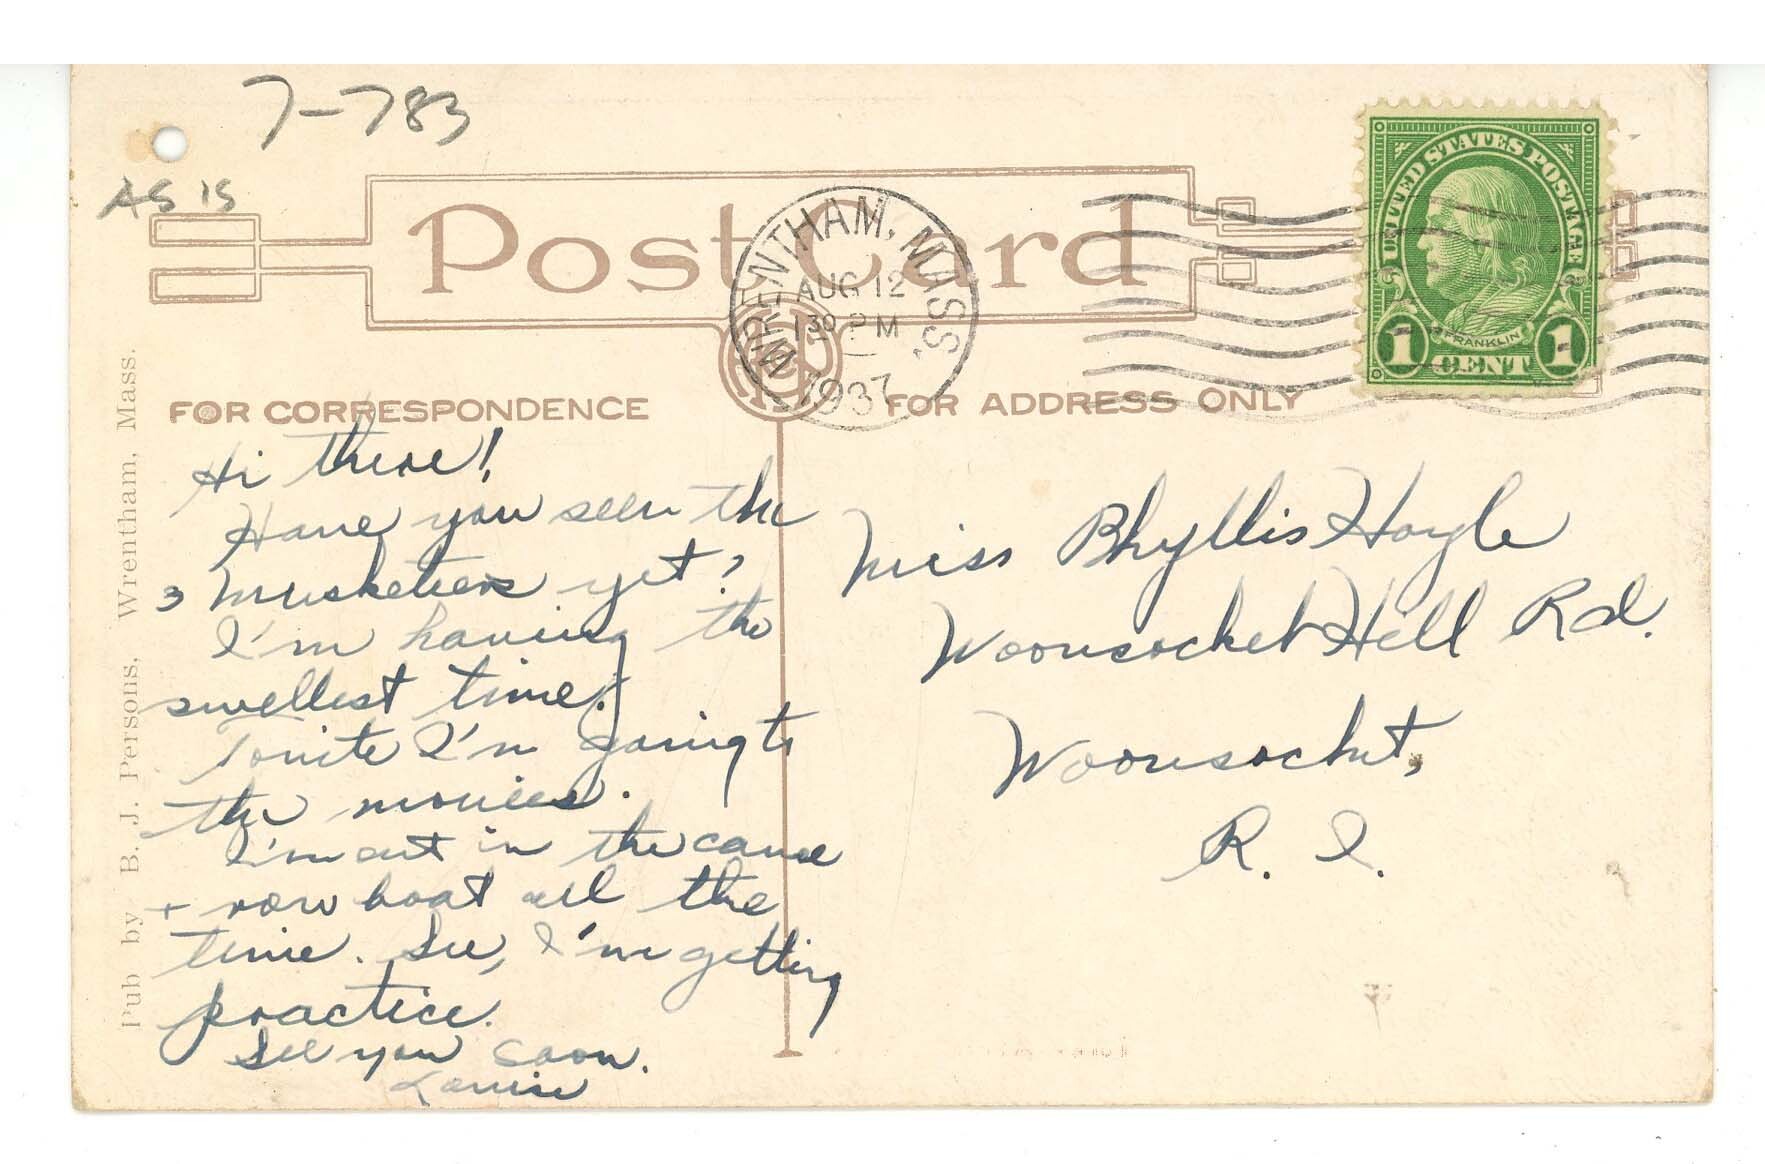 7-783
AS IS
Post Card
WRENTHAM, MASS.
AUG 12
1 30 PM
1937
UNITED STATES POSTAGE
FRANKLIN
1 CENT 1
FOR CORRESPONDENCE
FOR ADDRESS ONLY
Pub by B. J. Persons, Wrentham, Mass.
Hi there!
Have you seen the
3 Musketeers yet?
I'm having the
swellest time.
Tonite I'm going to
the movies.
I'm out in the canoe
+ row boat all the
time. See, I'm getting
practice.
See you soon.
Louise
Miss Phyllis Hoyle
Woonsocket Hill Rd.
Woonsocket,
R. I.